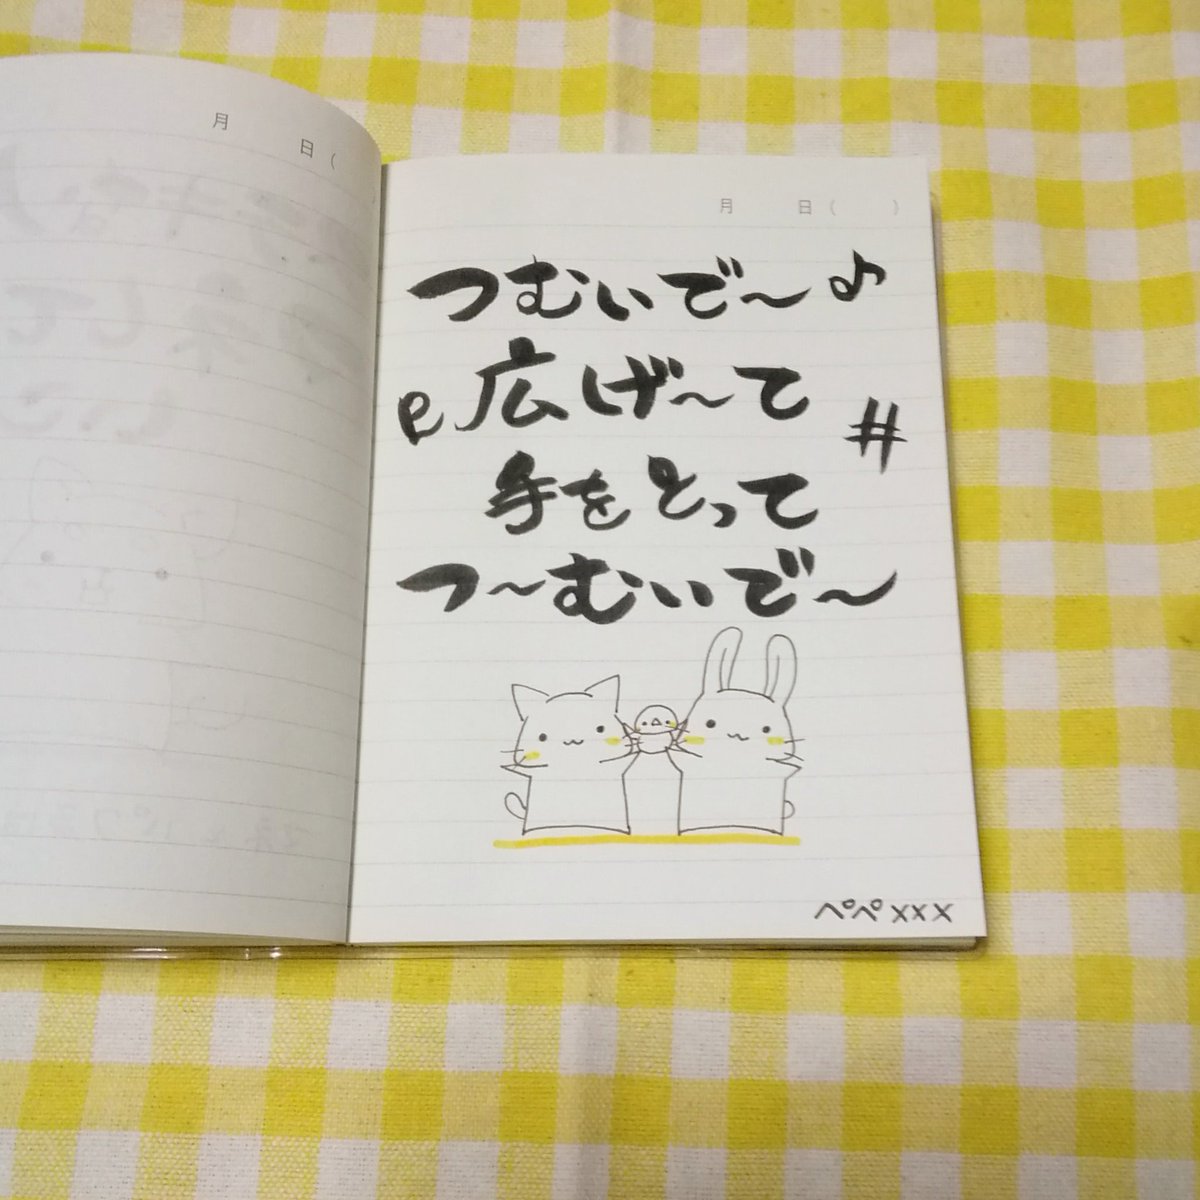 月
日(
月 日( )
つむいで〜♪
広げ〜て
#
手をとって
つ〜むいで〜
ペペ×××